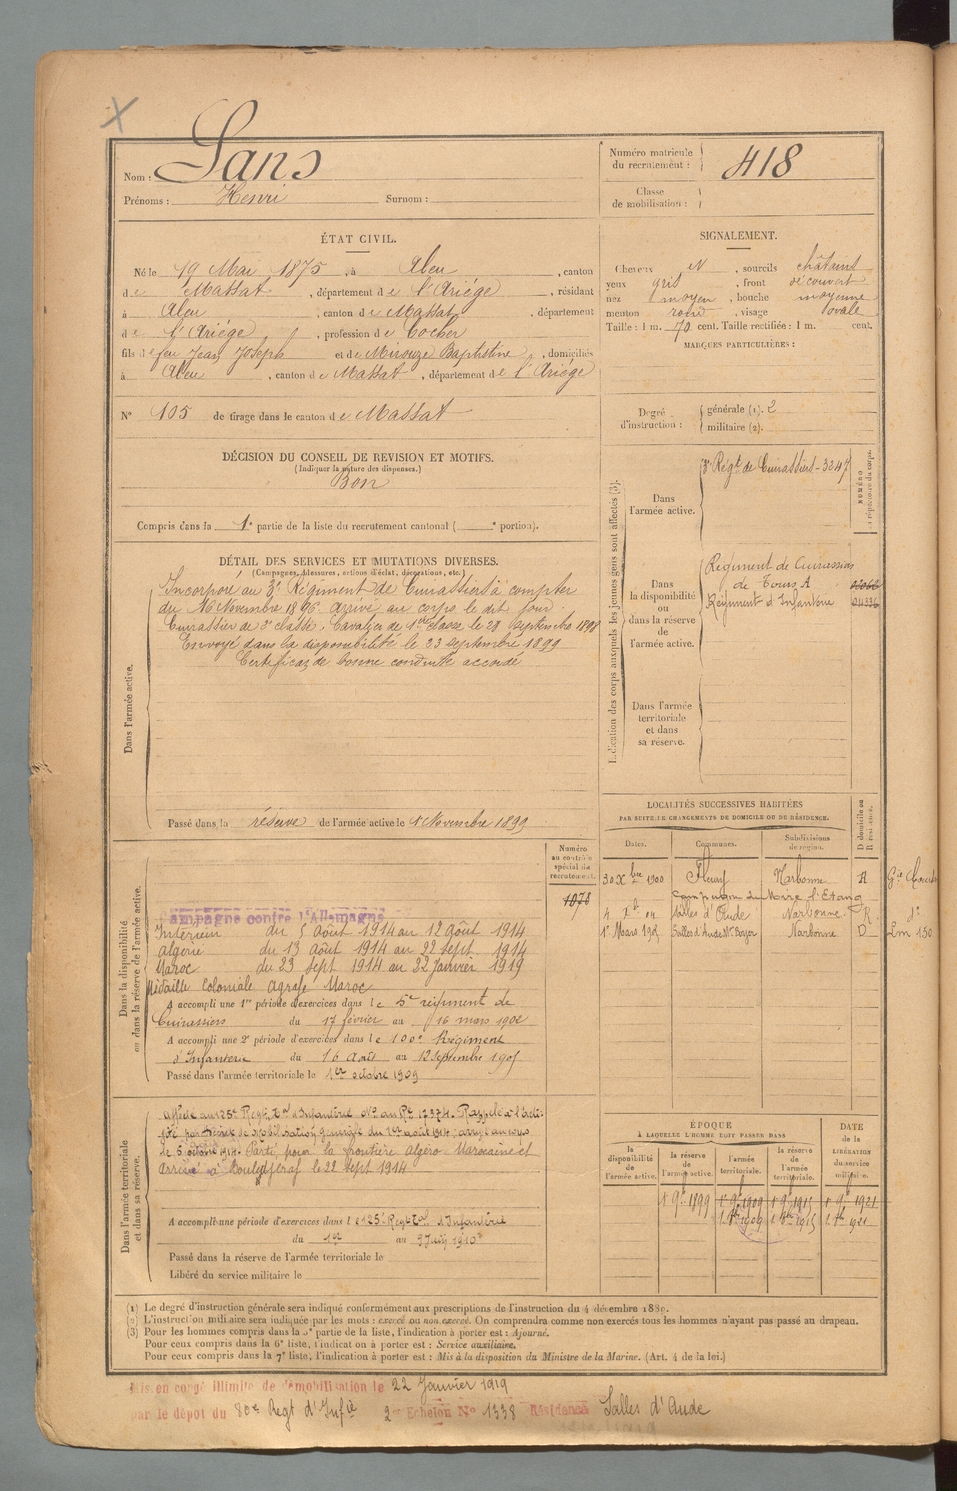 Nom : Sans
Prénoms : Henri Surnom :
Numéro matricule du recrutement : 418
Classe de mobilisation :
ÉTAT CIVIL.
Né le 19 Mai 1875, à Aleu, canton
de Massat, département de l'Ariège, résidant
à Aleu, canton de Massat, département
de l'Ariège, profession de Cocher
fils de feu Jean Joseph et de Mirouze Baptistine, domiciliés
à Aleu, canton de Massat, département de l'Ariège
N° 105 de tirage dans le canton de Massat
SIGNALEMENT.
Cheveux N, sourcils châtains
yeux gris, front découvert
nez moyen, bouche moyenne
menton rond, visage ovale
Taille : 1 m. 70 cent. Taille rectifiée : 1 m. cent.
MARQUES PARTICULIÈRES :
Degré d'instruction : générale (1). 2
militaire (2).
DÉCISION DU CONSEIL DE REVISION ET MOTIFS.
(Indiquer la nature des dispenses.)
Bon
Compris dans la 1e partie de la liste du recrutement cantonal ( e portion).
DÉTAIL DES SERVICES ET MUTATIONS DIVERSES.
(Campagnes, blessures, actions d'éclat, décorations, etc.)
Dans l'armée active.
Incorporé au 3e Régiment de Cuirassiers à compter
du 16 Novembre 1896. Arrivé au corps le dit jour.
Cuirassier de 2e classe. Cavalier de 1ère classe le 28 Septembre 1898
Envoyé dans la disponibilité le 23 septembre 1899
Certificat de bonne conduite accordé
Passé dans la réserve de l'armée active le 1 Novembre 1899
Indication des corps auxquels les jeunes gens sont affectés (3).
Dans l'armée active.
3e Régt de Cuirassiers - 3247
NUMÉRO au répertoire du corps.
Dans la disponibilité ou dans la réserve de l'armée active.
Régiment de Cuirassiers
de Tours A
Régiment d'Infanterie
Dans l'armée territoriale et dans sa réserve.
LOCALITÉS SUCCESSIVES HABITÉES
PAR SUITE DE CHANGEMENTS DE DOMICILE OU DE RÉSIDENCE.
Dates. Communes. Subdivisions de région. D domicile ou R résidence.
30 Xbre 1900 Fleury Narbonne
4 Xb 04 Salles d'Aude Narbonne R
1er Mars 1905 Salles d'Aude Narbonne D
Numéro au contrôle spécial du recrutement.
1078
Dans la disponibilité ou dans la réserve de l'armée active.
ampagne contre l'Allemagne
Intérieur du 5 Août 1914 au 12 Août 1914
Algérie du 13 août 1914 au 22 sept. 1914
Maroc du 23 sept 1914 au 22 Janvier 1919
Médaille Coloniale Agrafe Maroc
A accompli une 1re période d'exercices dans le 5e régiment de
Cuirassiers du 17 février au 16 mars 1902
A accompli une 2e période d'exercices dans le 100e Régiment
d'Infanterie du 16 Août au 12 Septembre 1905
Passé dans l'armée territoriale le 1er octobre 1909
Dans l'armée territoriale et dans sa réserve.
Affecté au 125e Regt Ter d'Infanterie No au Re 12374. Rappelé à l'acti-
vité par décret de mobilisation générale du 1er août 1914. Arrivé au corps
le 5 août 1914. Parti pour la frontière Algéro Marocaine et
arrivé à le 22 sept 1914
A accompli une période d'exercices dans le 125e Regt Ter d'Infanterie
du 1er au 9 Juin 1910
Passé dans la réserve de l'armée territoriale le
Libéré du service militaire le
ÉPOQUE
À LAQUELLE L'HOMME DOIT PASSER DANS
la disponibilité de l'armée active. la réserve de l'armée active. l'armée territoriale. la réserve de l'armée territoriale. DATE de la LIBÉRATION du service militaire.
1 9b 1899 1 9b 1909 1 9b 1915 1 9b 1921
1 8b 1909 1 8b 1915 1 8b 1921
(1) Le degré d'instruction générale sera indiqué conformément aux prescriptions de l'instruction du 4 décembre 1889.
(2) L'instruction militaire sera indiquée par les mots : exercé ou non exercé. On comprendra comme non exercés tous les hommes n'ayant pas passé au drapeau.
(3) Pour les hommes compris dans la 5e partie de la liste, l'indication à porter est : Ajourné.
Pour ceux compris dans la 6e liste, l'indication à porter est : Service auxiliaire.
Pour ceux compris dans la 7e liste, l'indication à porter est : Mis à la disposition du Ministre de la Marine. (Art. 4 de la loi.)
Mis en congé illimité de démobilisation le 22 Janvier 1919
par le dépôt du 80e Regt d'Infie 2e Echelon N° 1338 Résidence Salles d'Aude